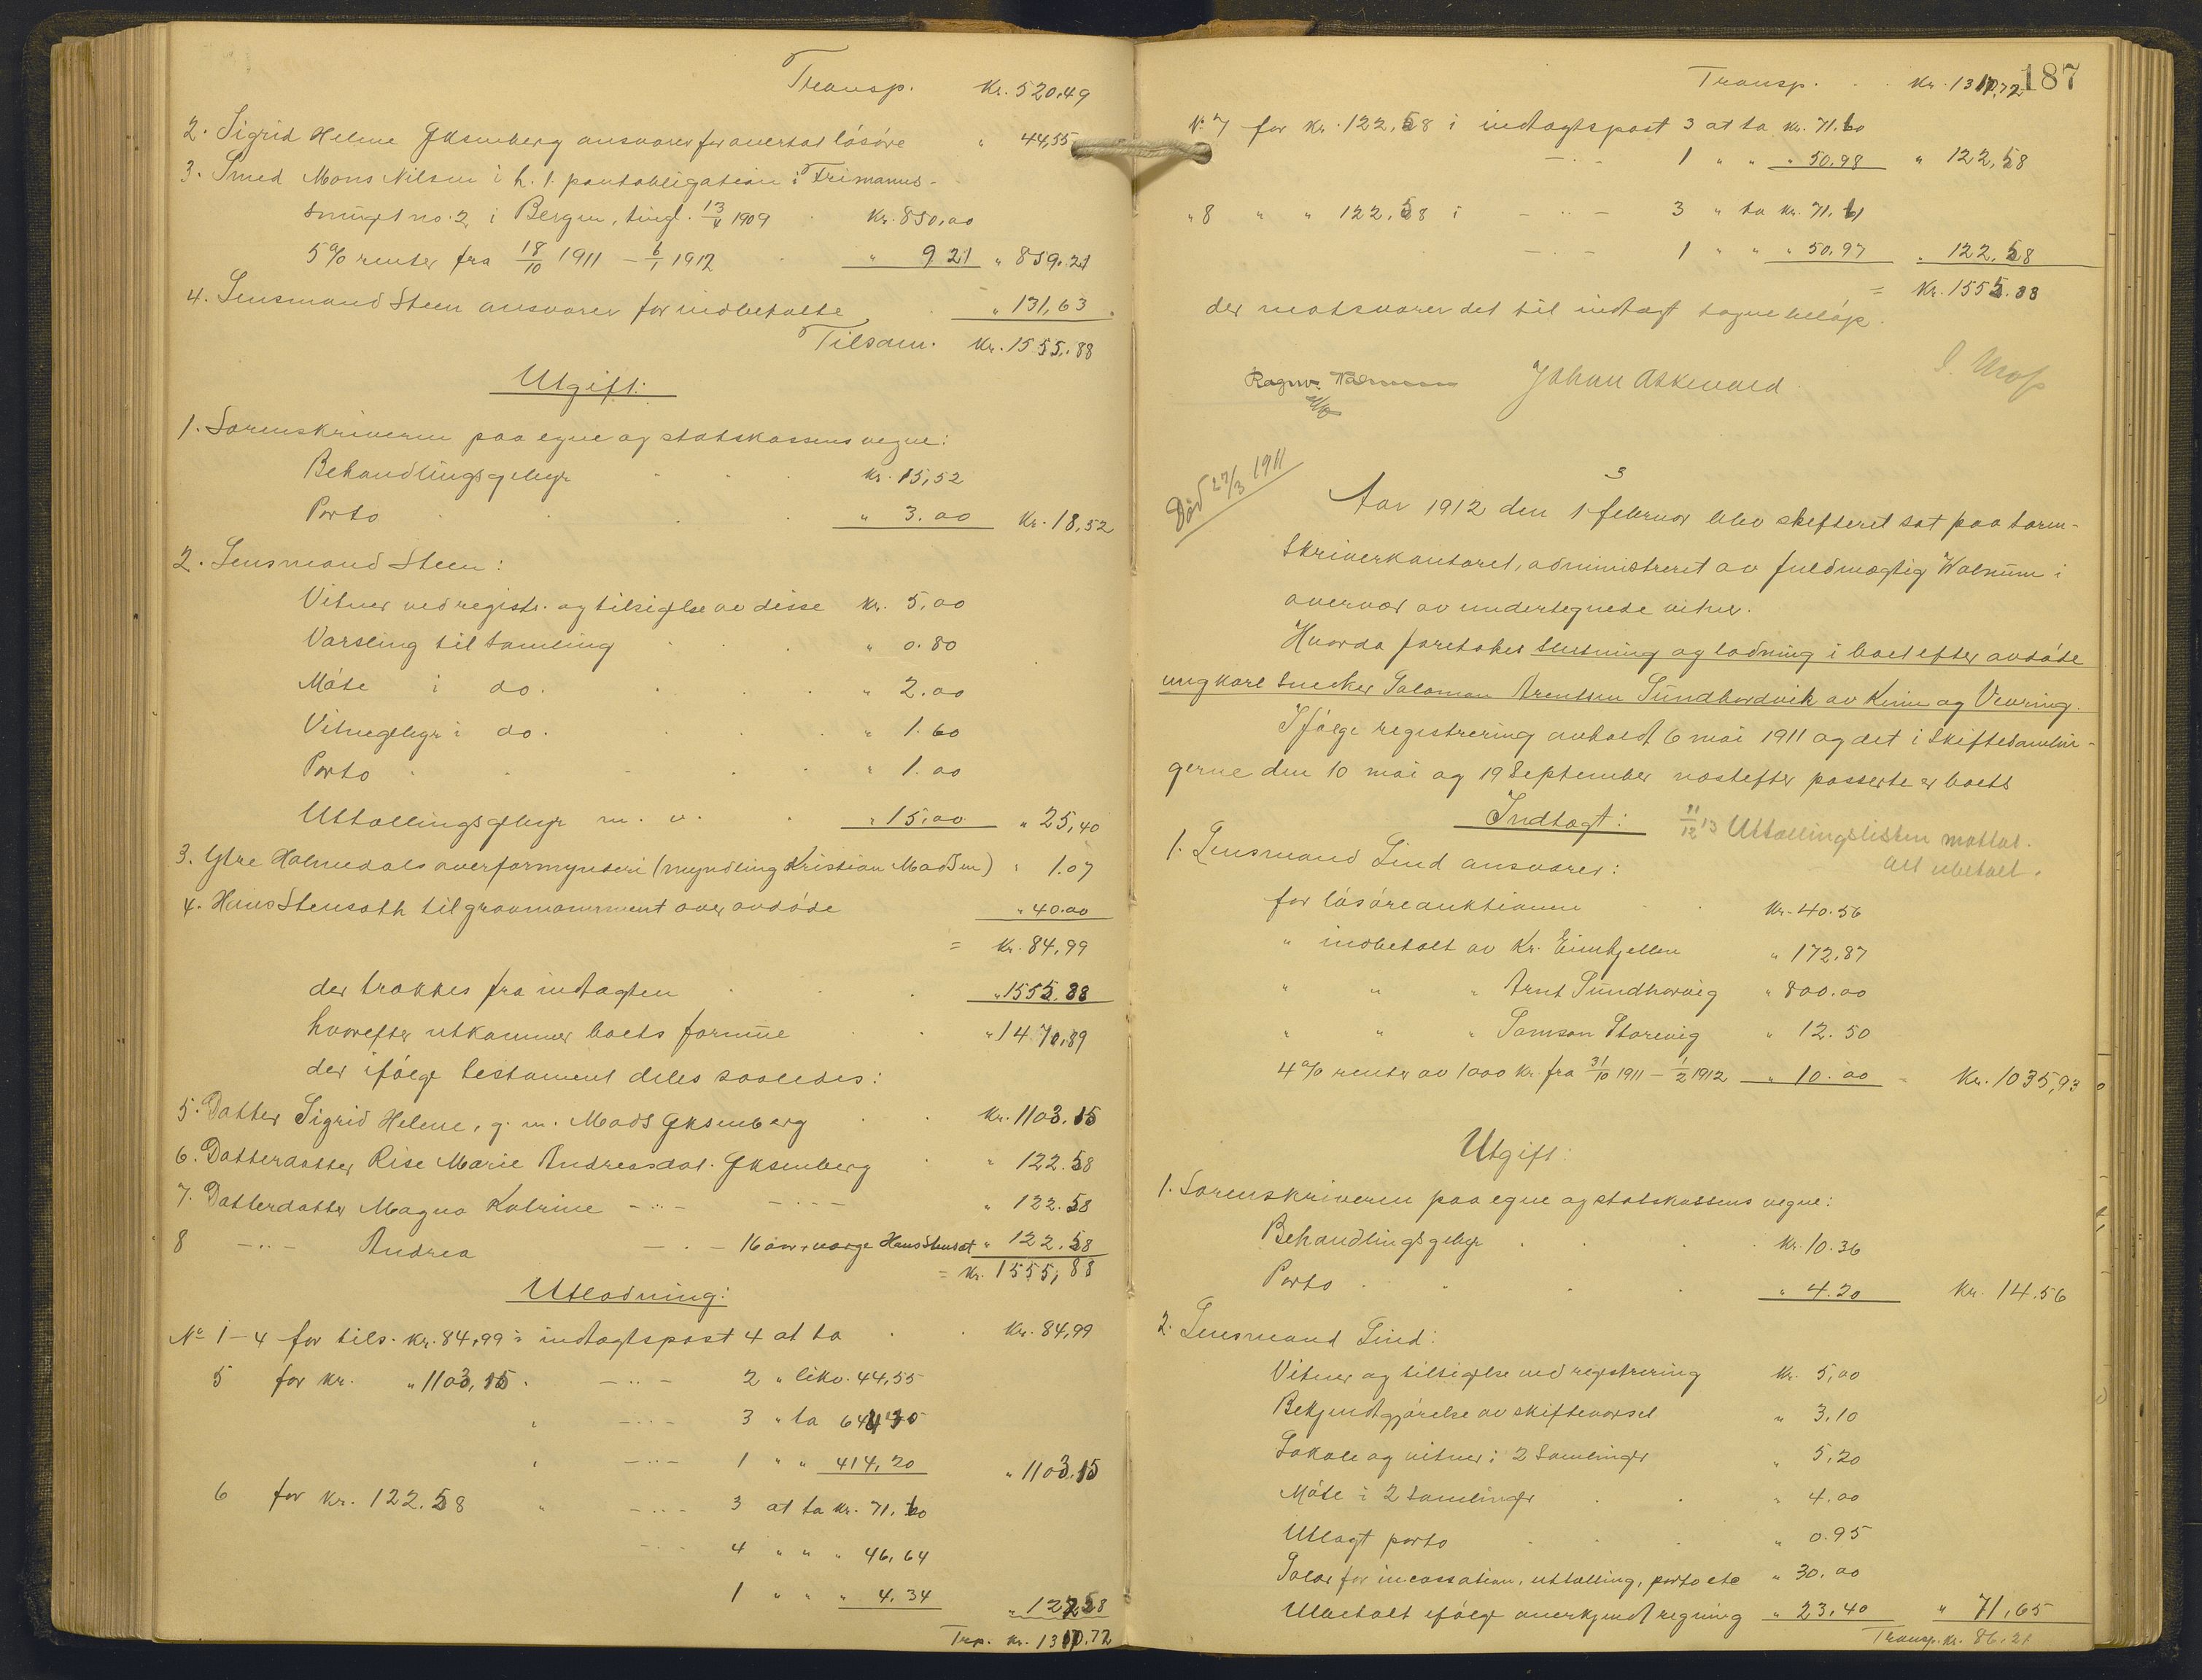 Transp. Kr. 520,49
2. Sigrid Helene Yksenberg ansvarer for overtat løsøre " 44,55
3. Smed Mons Nilsen i h. t. pantobligation i Frimanns-
smuget no. 2 i Bergen, tingl. 13/4 1909 Kr. 850,00
5% renter fra 18/10 1911 – 6/1 1912 " 9 21 " 859.21
4. Lensmand Steen ansvarer for indbetalte " 131,63
Tilsam. Kr. 1555,88
Utgift:
1. Sorenskriveren paa egne og statskassens vegne:
Behandlingsgebyr Kr. 15,52
Porto " 3.00 Kr. 18,52
2. Lensmand Steen:
Vitner ved registr. og tilsigelse av disse Kr. 5,00
Varsling til samling " 0.80
Møte i do. " 2.00
Vitnegebyr i do. " 1.60
Porto " 1.00
Uttællingsgebyr m. v. " 15,00 " 25,40
3. Ytre Holmedals overformynderi (myndling Kristian Madsen) " 1.07
4. Hans Stensæth til gravmonument over avdøde " 40.00
= Kr. 84,99
der trækkes fra indtægten " 1555.88
hvorefter utkommer boets formue " 1470,89
der ifølge testament deles saaledes:
5. Datter Sigrid Helene, g. m. Mads Yksenberg Kr. 1103.15
6. Datterdatter Rise Marie Andreasdat. Yksenberg " 122.58
7. Datterdatter Magna Katrine –"– –"– " 122.58
8 –"– Andrea –"– 16 aar, værge Hans Stensæt " 122.58
= Kr. 1555,88
Utlodning:
No 1–4 for tils. Kr. 84,99 i indtægtspost 4 at ta Kr. 84,99
5 for Kr. " 1103,15 " –"– 2 " likv. 44,55
" –"– 3 " ta 644,40
" –"– 1 " " 414,20 " 1103.15
6 for Kr. 122.58 " –"– 3 at ta Kr. 71.60
–"– 4 " " " 46,64
1 " " " 4.34 " 122.58
Trp. Kr. 1310.72
187
Transp. Kr. 1310,72
No 7 for Kr. 122,58 i indtægtspost 3 at ta Kr. 71.60
–"– 1 " " " 50,98 " 122,58
" 8 " " 122,58 i –"– 3 " ta Kr. 71,61
–"– 1 " " " 50,97 " 122,58
= Kr. 1555.88
der motsvarer det til indtægt tagne beløp.
Ragnv. Johan Askevold
Død 27/3 1911
3
Aar 1912 den 1 februar blev skifteret sat paa soren-
skriverkontoret, administreret av fuldmægtig Walnum i
overvær av undertegnede vitner.
Hvorda foretokes slutning og lodning i boet efter avdøde
ungkarl snekker Salomon Arentsen Sundhordvik av Kinn og Vevring.
Ifølge registrering avholdt 6 mai 1911 og det i skiftesamlin-
gerne den 10 mai og 19 September næstefter passerte er boets
Indtægt:
11/12 13 Uttællingslisten mottat.
alt utbetalt.
1. Lensmand Lind ansvarer:
for løsøreauktionen Kr. 40.56
" indbetalt av Kr. Eimhjellen " 172,87
" " " Arnt Sundhorvig " 800.00
" " " Samson Storevig " 12.50
4% renter av 1000 kr. fra 31/10 1911 – 1/2 1912 " 10.00 = Kr. 1035,93
Utgift:
1. Sorenskriveren paa egne og statskassens vegne:
Behandlingsgebyr Kr. 10.36
Porto " 4.20 Kr. 14.56
2. Lensmand Lind:
Vitner og tilsigelse ved registrering Kr. 5,00
Bekjendtgjørelse av skiftevarsel " 3,10
Lokale og vitner i 2 samlinger " 5,20
Møte i 2 samlinger " 4.00
Utlagt porto " 0.95
Salær for incassation, uttælling, porto etc " 30.00
Utbetalt ifølge anerkjendt regning " 23,40 " 71,65
Transp. Kr. 86.21